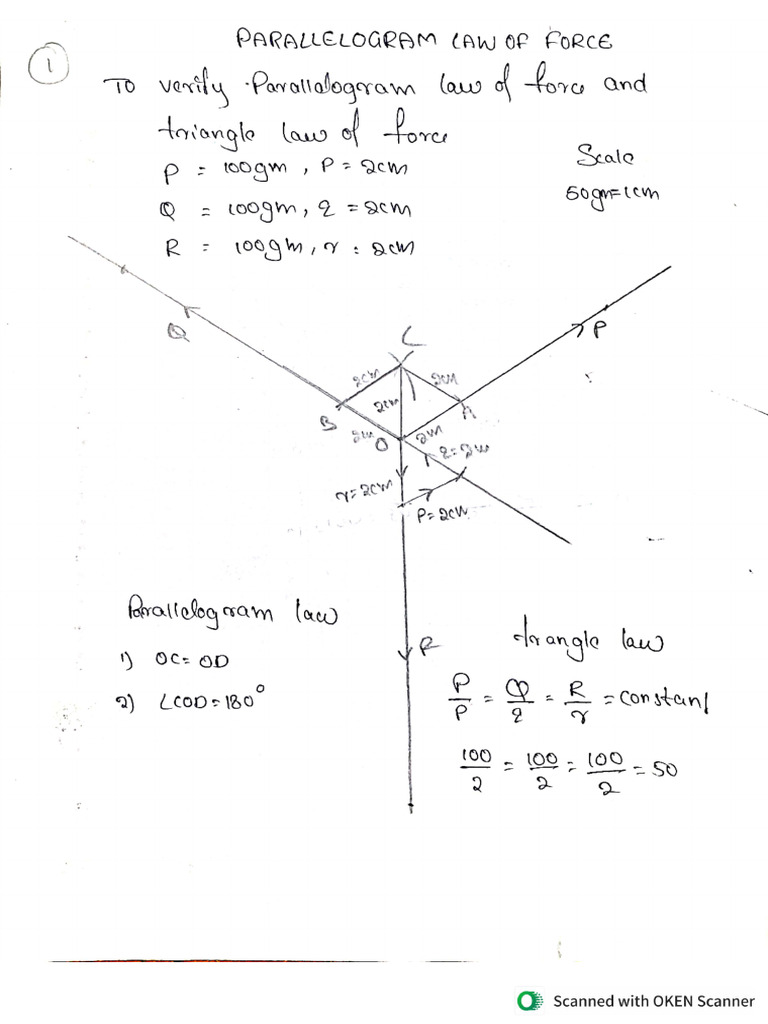 PARALLELOGRAM LAW OF FORCE
1
TO verify Parallalogram law of force and
triangle law of force
P = 100gm, P = 2cm
Q = 100gm, q = 2cm
R = 100gm, r = 2cm
Scale
50gm=1cm
Q
P
C
2cm
2cm
2cm
B
A
2cm
O
2cm
q=2cm
r=2cm
P=2cm
R
Parallelogram law
1) OC=OD
2) ∠COD=180°
triangle law
P/P = Q/q = R/r = constant
100/2 = 100/2 = 100/2 = 50
Scanned with OKEN Scanner